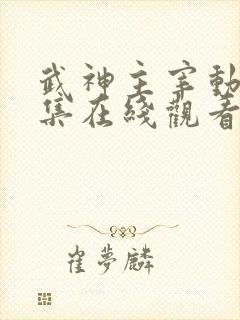 武神主宰動
集在綫觀看
崔夢麟